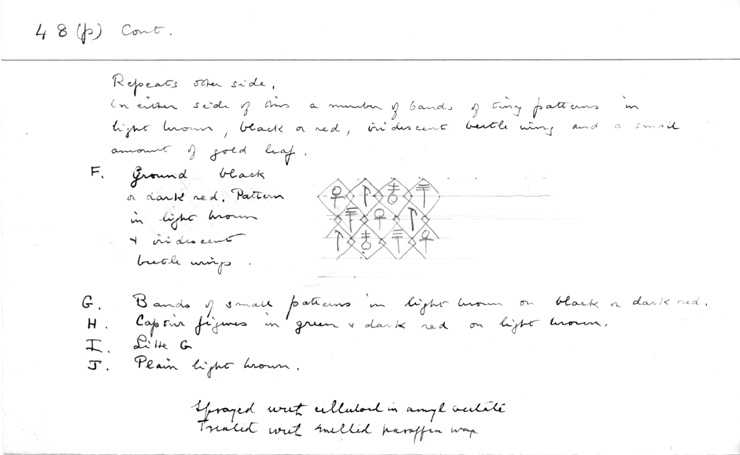 48(p) Cont.
Repeats other side.
On either side of this a number of bands of tiny patterns in
light brown, black or red, iridescent beetle wing and a small
amount of gold leaf.
F. Ground black
or dark red. Pattern
in light brown
+ iridescent
beetle wings.
G. Bands of small patterns in light brown on black or dark red.
H. figures in green & dark red on light brown.
I. Like G
J. Plain light brown.
Sprayed with celluloid in amyl acetate
Treated with melted paraffin wax